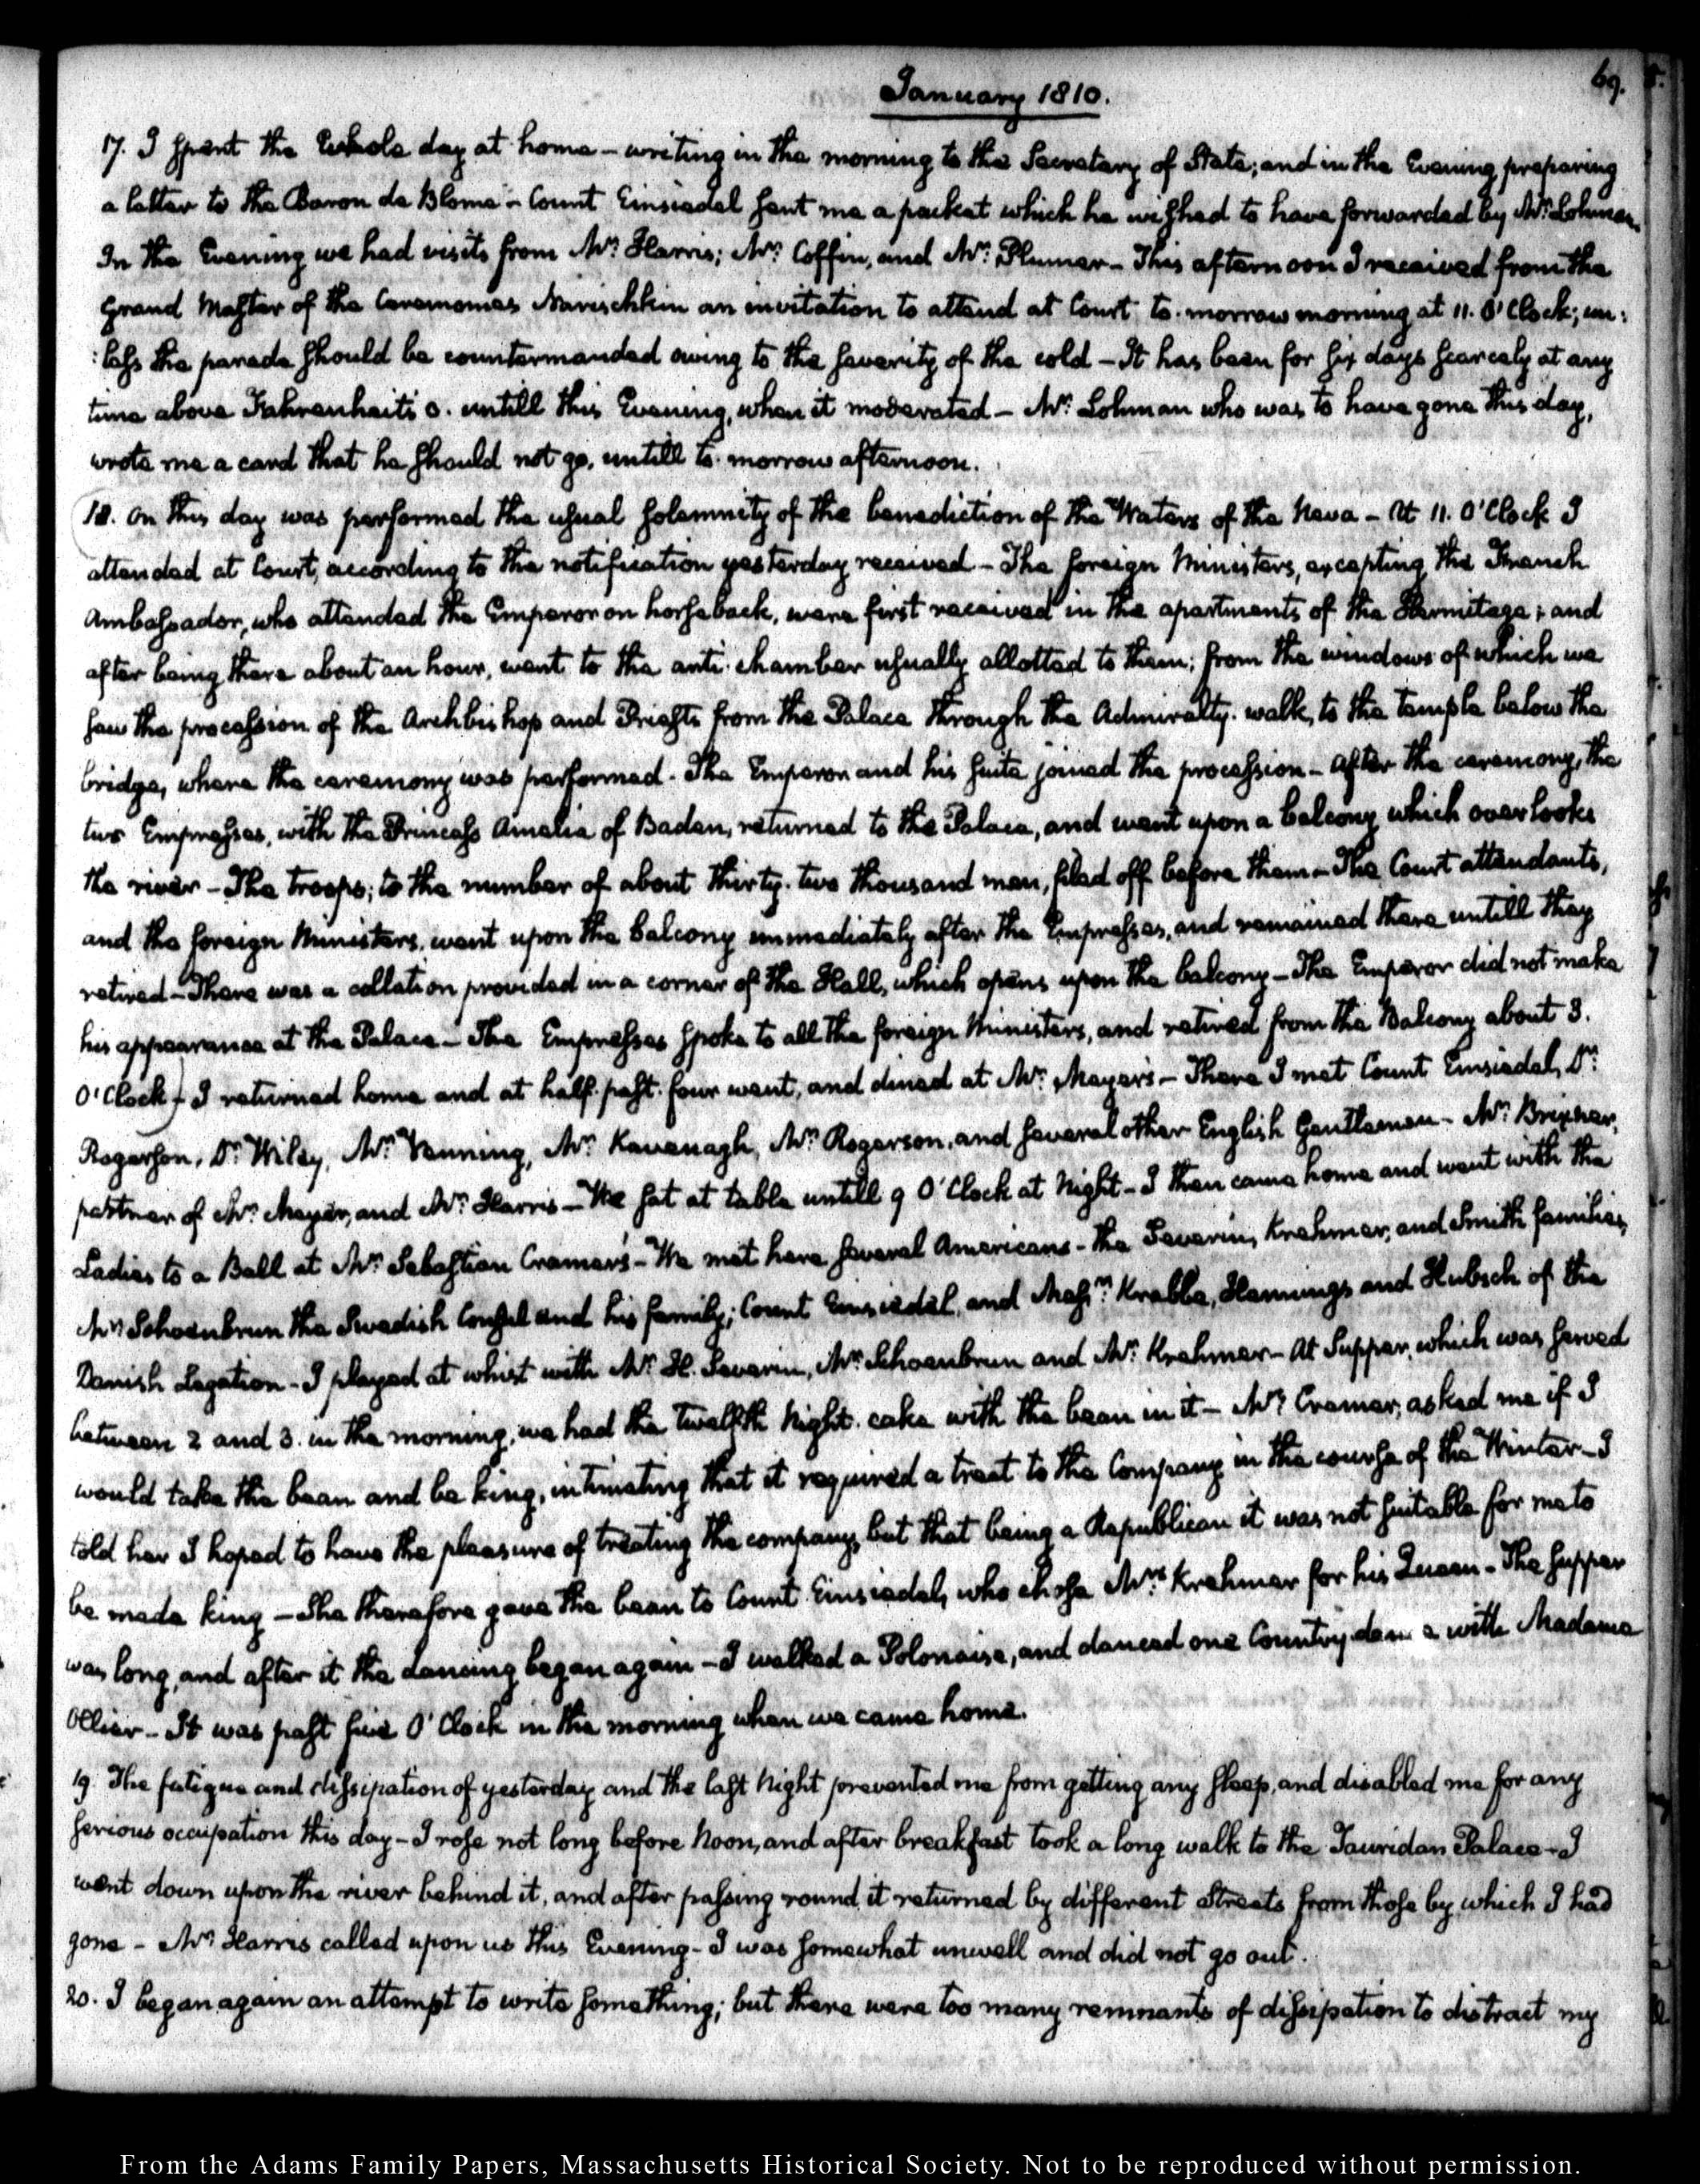 January 1810.
69.
17. I spent the whole day at home – writing in the morning to the Secretary of State; and in the Evening preparing
a letter to the Baron de Blome – Count Einsiedel sent me a packet which he wished to have forwarded by Mr: Lohman.
In the Evening we had visits from Mr: Harris; Mr: Coffin, and Mr: Plumer – This afternoon I received from the
Grand Master of the Ceremonies Narischkin an invitation to attend at Court to-morrow morning at 11. O'Clock; un:
:less the parade should be countermanded owing to the severity of the cold – It has been for six days scarcely at any
time above Fahrenheit's 0. untill this Evening, when it moderated – Mr: Lohman who was to have gone this day,
wrote me a card that he should not go, untill to-morrow afternoon.
18. On this day was performed the usual solemnity of the benediction of the Waters of the Neva – At 11. O'Clock I
attended at Court, according to the notification yesterday received – The foreign Ministers, excepting the French
Ambassador, who attended the Emperor on horseback, were first received in the apartments of the Hermitage; and
after being there about an hour, went to the anti-chamber usually allotted to them; from the windows of which we
saw the procession of the Archbishop and Priests from the Palace through the Admiralty-walk, to the temple below the
bridge, where the ceremony was performed. The Emperor and his suite joined the procession – After the ceremony, the
two Empresses, with the Princess Amelia of Baden, returned to the Palace, and went upon a balcony which overlooks
the river – The troops; to the number of about thirty-two thousand men, filed off before them – The Court attendants,
and the foreign Ministers, went upon the balcony immediately after the Empresses, and remained there untill they
retired – There was a collation provided in a corner of the Hall, which opens upon the balcony – The Emperor did not make
his appearance at the Palace – The Empresses spoke to all the foreign Ministers, and retired from the Balcony about 3.
O'Clock – I returned home and at half-past four went, and dined at Mr: Meyer's – There I met Count Einsiedel, Dr:
Rogerson, Dr: Wiley, Mr: Venning, Mr: Kavanagh, Mr: Rogerson, and several other English Gentlemen – Mr: Brixner,
partner of Mr: Meyer, and Mr: Harris – We sat at table untill 9 O'Clock at Night – I then came home and went with the
Ladies to a Ball at Mr: Sebastian Cramer's – We met here several Americans – the Severin, Krehmer, and Smith families,
Mr: Schoenbrun the Swedish Consul and his family; Count Einsiedel, and Messrs: Krabbe, Hennings and Hubsch of the
Danish Legation – I played at whist with Mr: H. Severin, Mr: Schoenbrun and Mr: Krehmer – At Supper, which was served
between 2 and 3. in the morning, we had the twelfth Night-cake with the bean in it – Mrs: Cramer, asked me if I
would take the bean and be king, intimating that it required a treat to the Company in the course of the Winter – I
told her I hoped to have the pleasure of treating the company, but that being a Republican it was not suitable for me to
be made king – She therefore gave the bean to Count Einsiedel, who chose Mrs: Krehmer for his Queen – The supper
was long, and after it the dancing began again – I walked a Polonaise, and danced one Country dance with Madame
Ollier – It was past five O'Clock in the morning when we came home.
19. The fatigue and dissipation of yesterday and the last Night prevented me from getting any sleep, and disabled me for any
serious occupation this day – I rose not long before Noon, and after breakfast took a long walk to the Tauridan Palace – I
went down upon the river behind it, and after passing round it returned by different Streets from those by which I had
gone – Mr: Harris called upon us this Evening – I was somewhat unwell and did not go out.
20. I began again an attempt to write something; but there were too many remnants of dissipation to distract my
From the Adams Family Papers, Massachusetts Historical Society. Not to be reproduced without permission.